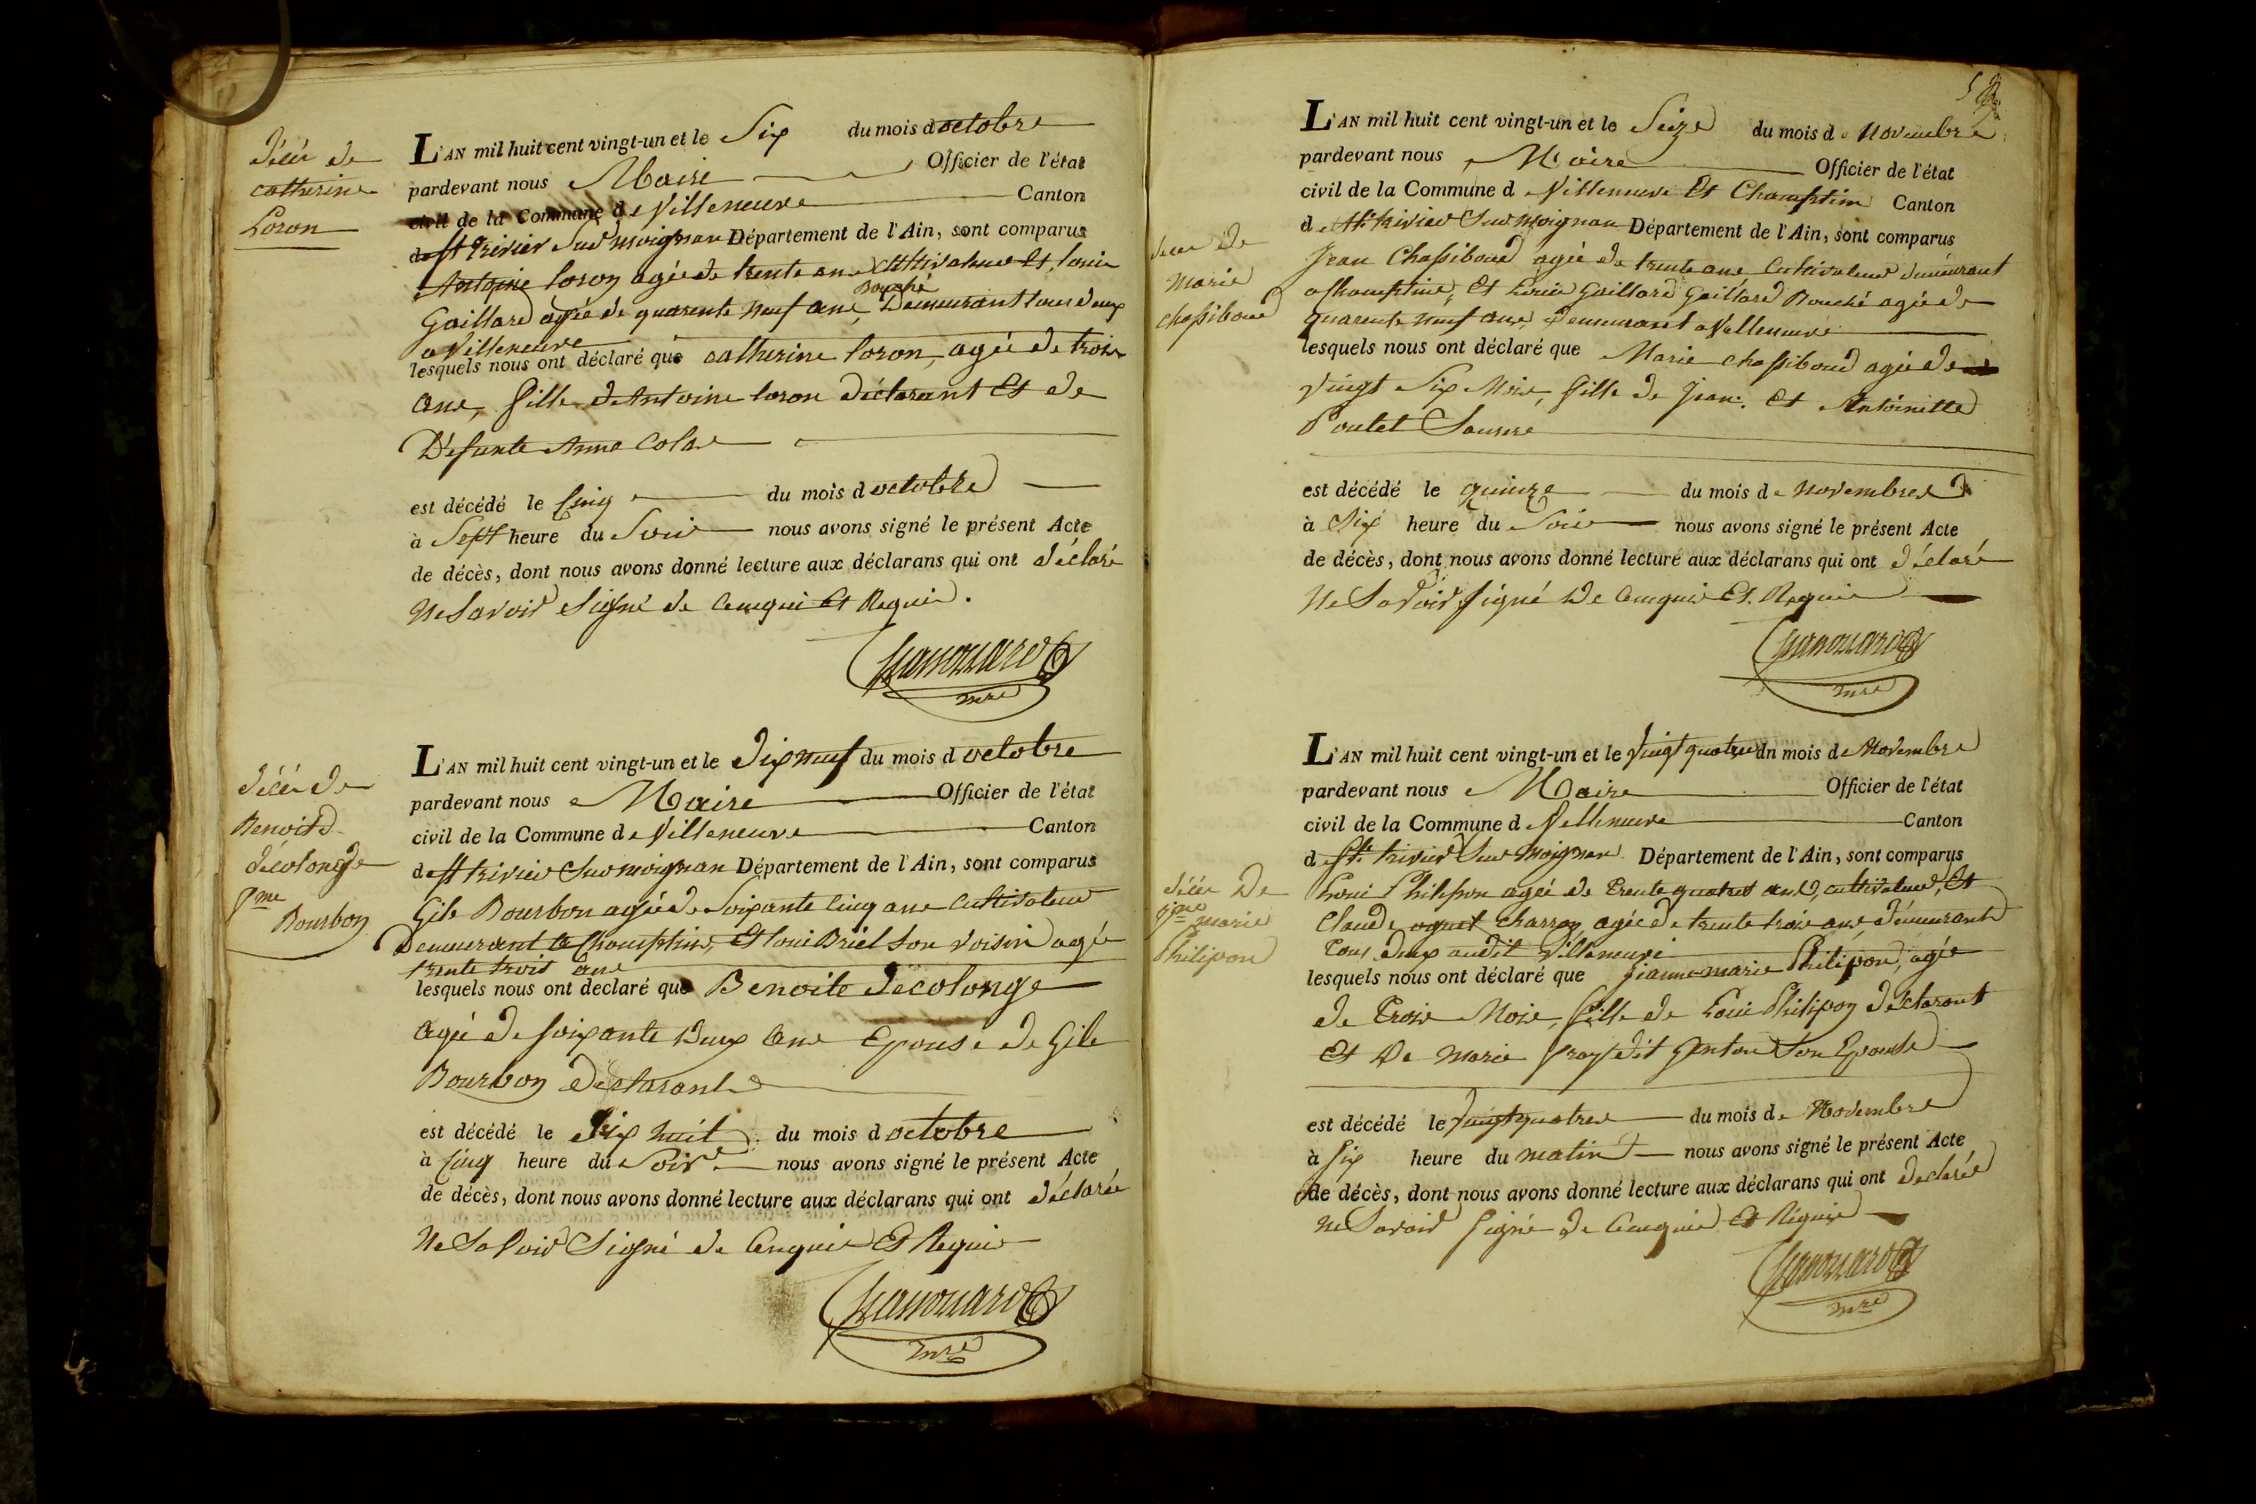 décés de
catherine
Loron
L'AN mil huit cent vingt-un et le Six du mois d octobre
pardevant nous Maire Officier de l'état
civil de la Commune de Villeneuve Canton
de St trivier Sur moignan Département de l'Ain, sont comparus
Antoine loron agée de trente ans cultivateur et louis
Bouché
Gaillard agée de quarente neuf ans, Demeurant tous deux
a Villeneuve
lesquels nous ont déclaré que catherine loron, agée de trois
ans, fille d'Antoine loron déclarant Et de
Défunte Anne Colas
est décédé le Cinq du mois d octobre
à Sept heure du Soir nous avons signé le présent Acte
de décès, dont nous avons donné lecture aux déclarans qui ont déclaré
Ne Savoir Signé de Cenquis Et Requis.
mre
décés de
Benoite
décolonge
fme
Bourbon
L'AN mil huit cent vingt-un et le dix neuf du mois d octobre
pardevant nous Maire Officier de l'état
civil de la Commune de Villeneuve Canton
de St trivier Sur moignan Département de l'Ain, sont comparus
Gile Bourbon agée de Soixante Cinq ans Cultivateur
Demeurant a Chamftin, Et loui Briel Son Voisin agée
trente trois ans
lesquels nous ont declaré que Benoite décolonge
agée de Soixante Deux ans Epouse de Gile
Bourbon Déclarant
est décédé le Dix huit du mois d octobre
à Cinq heure du Soir nous avons signé le présent Acte
de décès, dont nous avons donné lecture aux déclarans qui ont déclarée
Ne Savoir Signé de Cenquis Et Requis
mre
L'AN mil huit cent vingt-un et le Seize du mois de Novembre
pardevant nous Maire Officier de l'état
civil de la Commune de Villeneuve Et Chamftin Canton
de St. trivier Sur moignan Département de l'Ain, sont comparus
décés de
Marie
chassiboud
Jean Chassiboud agée de trente ans Cultivateur demeurant
a Chamftin, Et Louis Gaillard Gaillard Bouché agée de
quarente neuf ans, Demeurant a Villeneuve
lesquels nous ont déclaré que Marie chassiboud agée de
vingt Six Mois, fille de Jean. Et Antoinette
Poulet
est décédé le quinze du mois de Novembres
à Six heure du Soir nous avons signé le présent Acte
de décès, dont nous avons donné lecture aux déclarans qui ont déclaré
Ne Savoir Signé De Cenquis Et Requis
mre
L'AN mil huit cent vingt-un et le vingt quatre dn mois de Novembre
pardevant nous Maire Officier de l'état
civil de la Commune d Velleneuve Canton
de St. trivier Sur moignan Département de l'Ain, sont comparus
décés De
jne marie
Philipon
Loui Philipon agée de Trente quatre ans, cultivateur, Et
Claude charron, agée de trente trois ans, demeurant
Tous deux audit Villeneuve
lesquels nous ont déclaré que jeanne marie Philipon, agée
de Trois Mois, fille de Loui Philipon déclarant
Et De Marie dit Genton Son Epouse
est décédé le vingt quatre du mois de Novembre
à Six heure du matin nous avons signé le présent Acte
de décès, dont nous avons donné lecture aux déclarans qui ont déclarée
Ne Savoir Signé De Cenquis Et Requis
mre